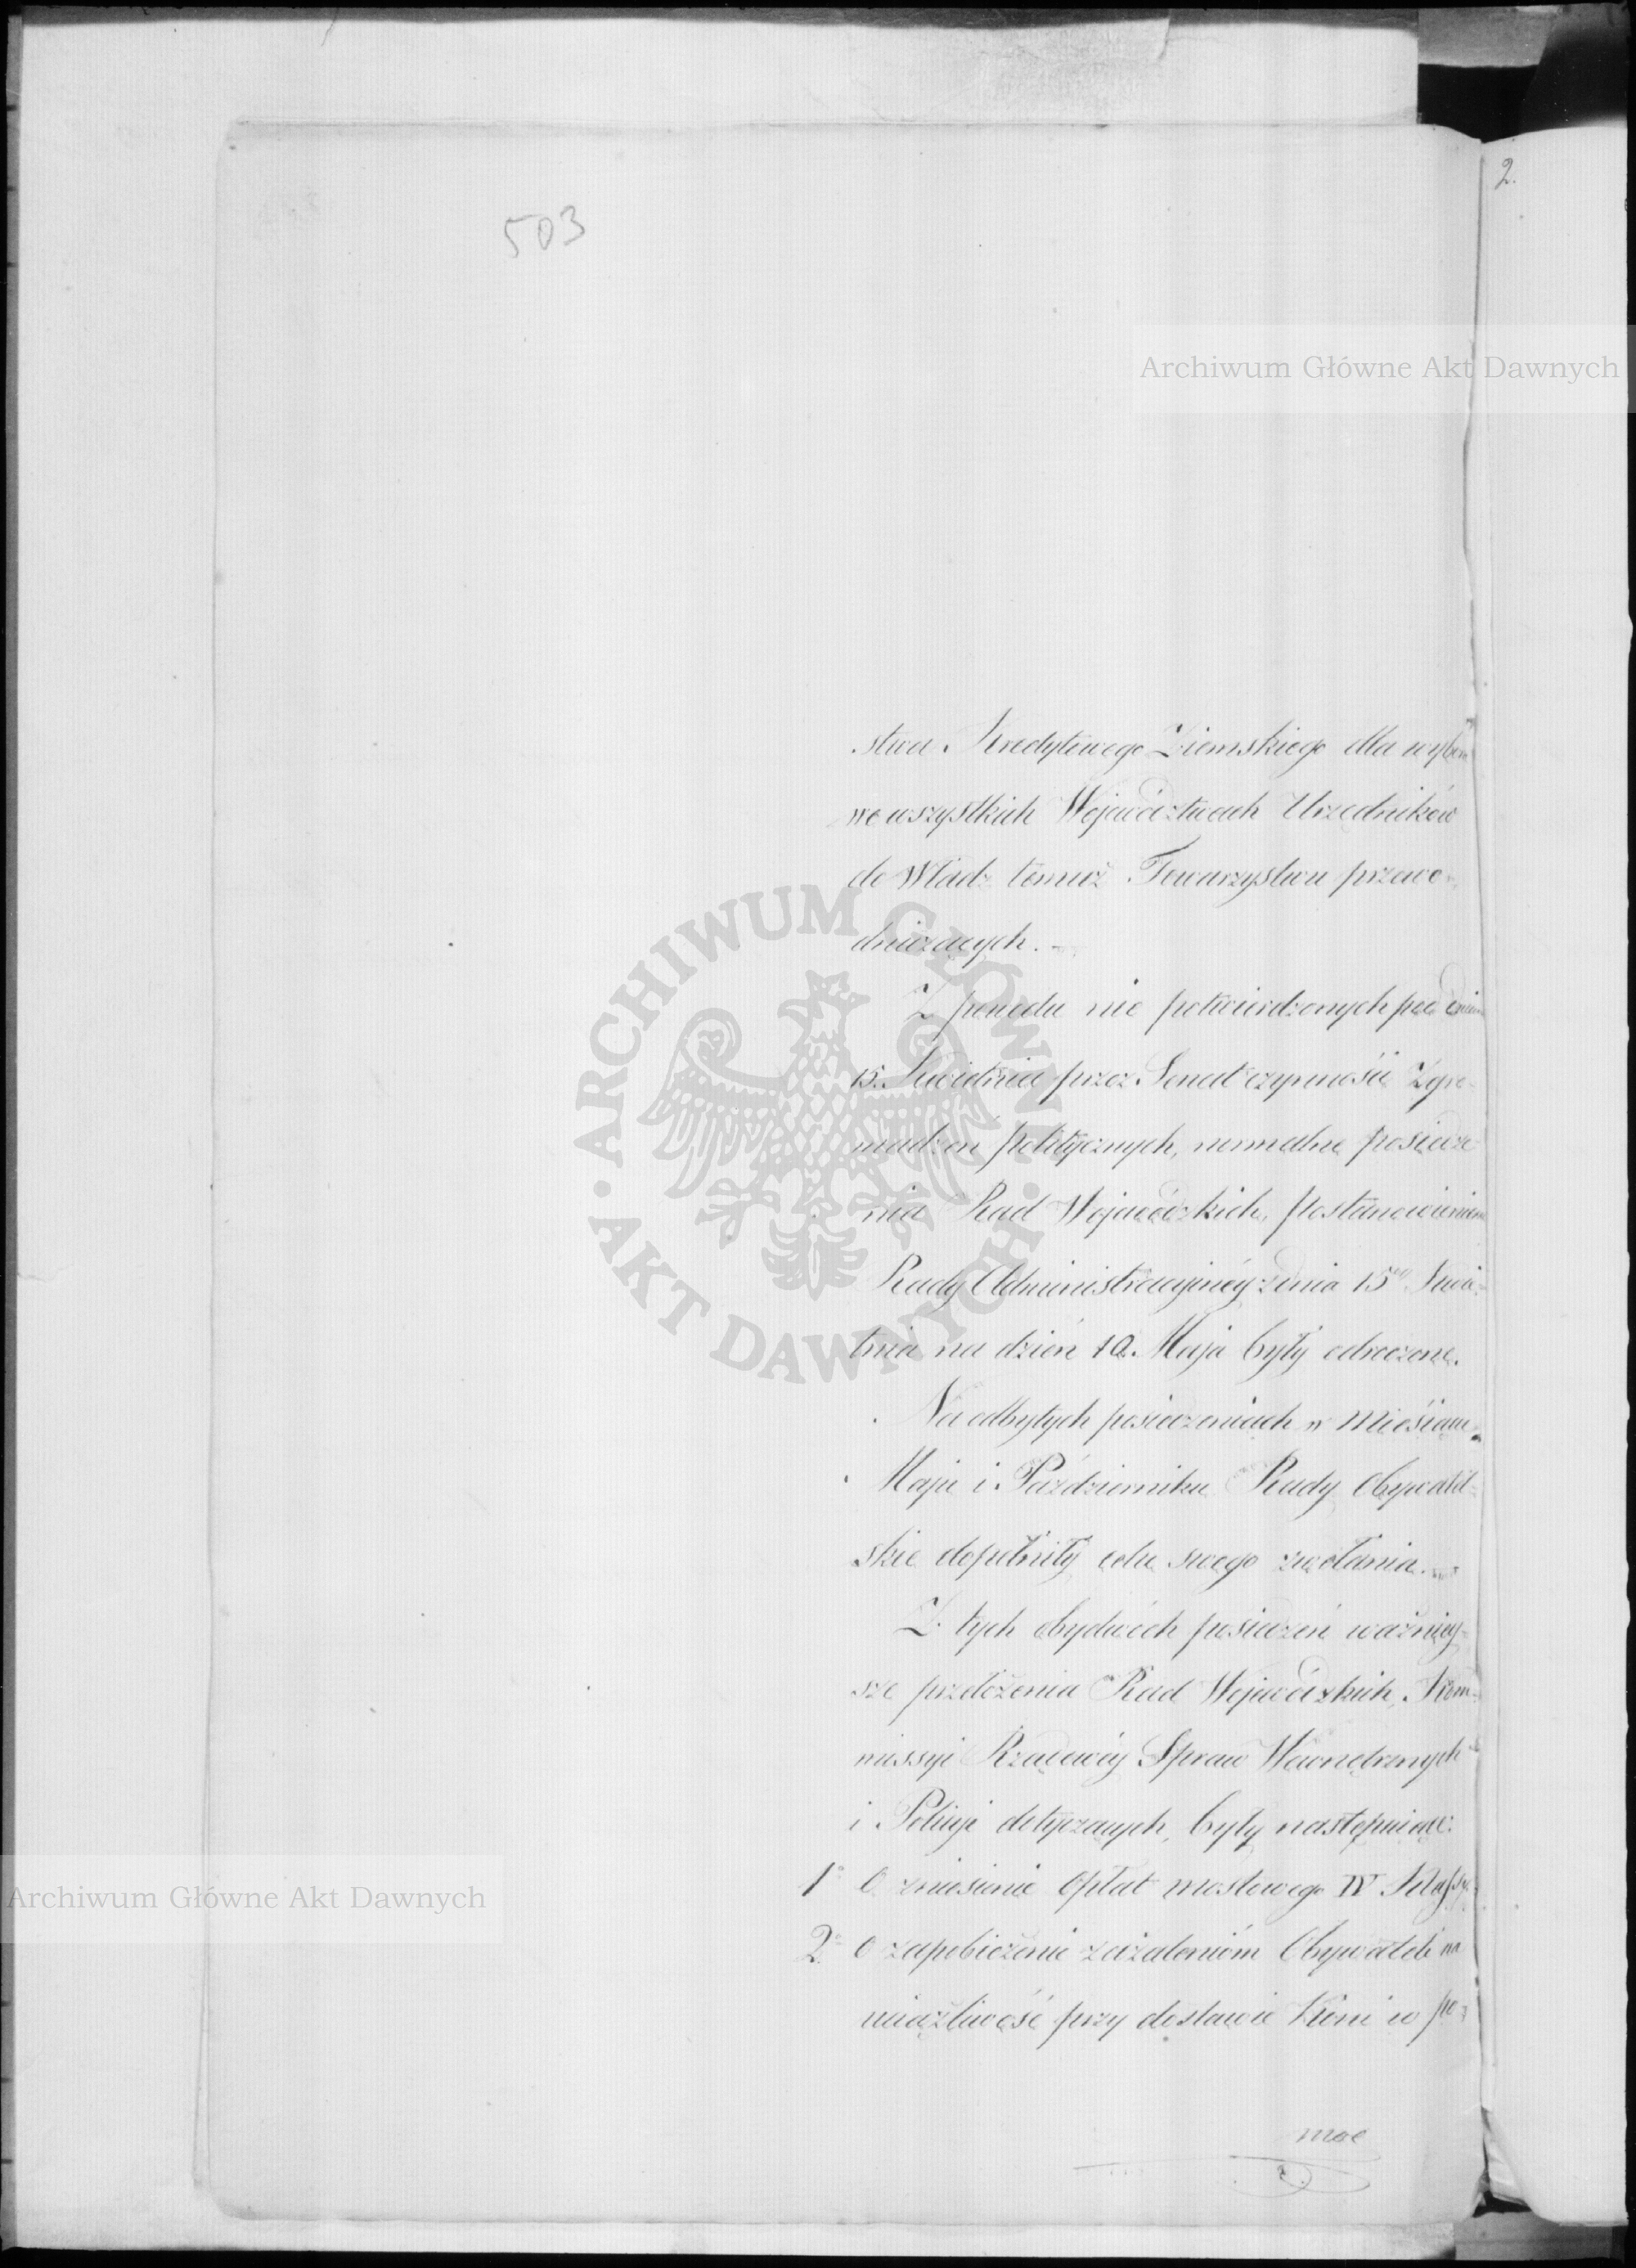 2.
503
stwa Kredytowego Ziemskiego dla wyboru
we wszystkich Województwach Urzędników
do Władz temuż Towarzystwu przewo-
dniczących. -
Z powodu nie potwierdzonych pod dniem
15. Kwietnia przez Senat czynności Zgro-
madzeń politycznych, normalne posiedze-
nia Rad Wojewódzkich, postanowieniem
Rady Administracyjnéy z dnia 15go Kwie-
tnia na dzień 10. Maja były odroczone.
Na odbytych posiedzeniach w Miesiącu
Maju i Październiku Rady Obywatel-
skie dopełniły celu swego zwołania.
Z tych obydwóch posiedzeń ważniey-
sze przełożenia Rad Wojewódzkich, Kom-
missyi Rządowéy Spraw Wewnętrznych
i Policyi dotyczących, były następuiące:
1o O zniesienie Opłat mostowego IV Klassy.
2o O zapobieżenie zażaleniom Obywateli na
uciążliwość przy dostawie Koni w po-
Archiwum Główne Akt Dawnych
Archiwum Główne Akt Dawnych
ARCHIWUM GŁÓWNE AKT DAWNYCH